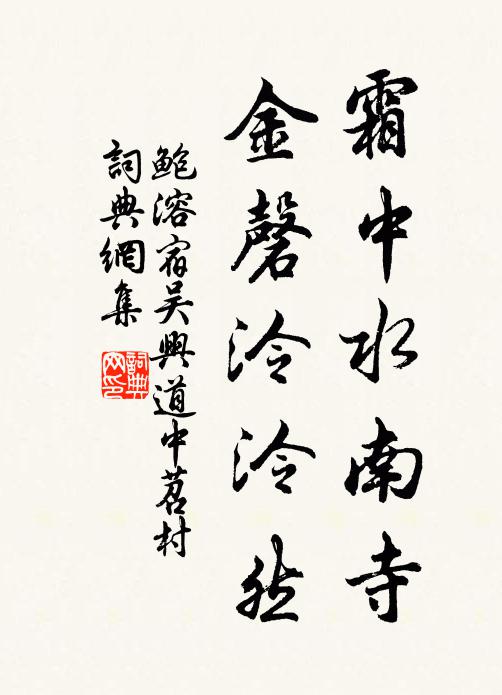 霜中水南寺
金磬泠泠然
鲍溶宿吴興道中苕村
詞典網集
詞典
网印